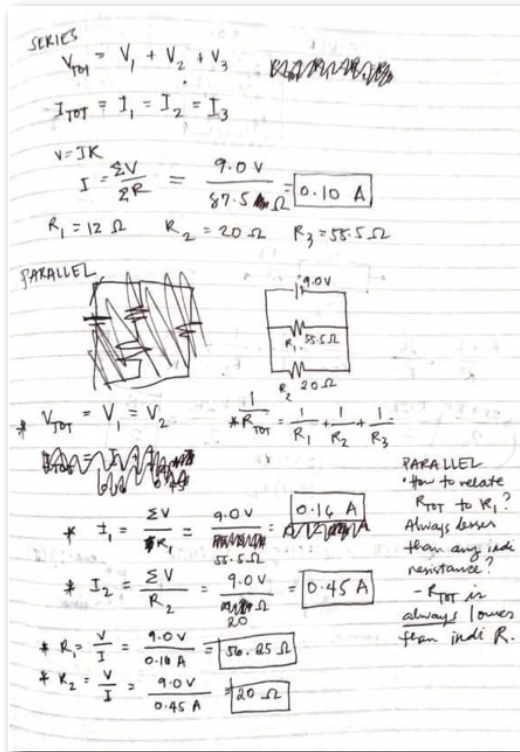 SERIES
V_TOT = V_1 + V_2 + V_3
I_TOT = I_1 = I_2 = I_3
V=IR
I = ΣV/ΣR = 9.0 V/87.5 Ω = 0.10 A
R_1 = 12 Ω R_2 = 20 Ω R_3 = 55.5 Ω
PARALLEL
9.0V
R_1 55.5Ω
R_2 20Ω
* V_TOT = V_1 = V_2 * 1/R_TOT = 1/R_1 + 1/R_2 + 1/R_3
* I_1 = ΣV/R_1 = 9.0 V/55.5 Ω = 0.16 A
* I_2 = ΣV/R_2 = 9.0 V/20 Ω = 0.45 A
* R_1 = V/I = 9.0 V/0.16 A = 56.25 Ω
* R_2 = V/I = 9.0 V/0.45 A = 20 Ω
PARALLEL
• How to relate
R_TOT to R_1?
Always lesser
than any indi
resistance?
- R_TOT is
always lower
than indi R.